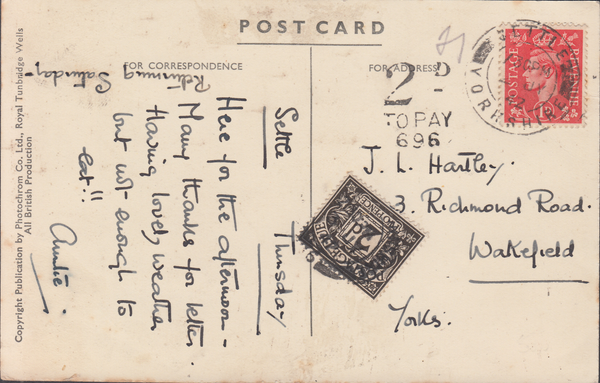 POST CARD
FOR CORRESPONDENCE
FOR ADDRESS
Copyright Publication by Photochrom Co. Ltd., Royal Tunbridge Wells
All British Production
Settle Thursday
Here for the afternoon -
Many thanks for letter.
Having lovely weather
but not enough to
eat!!
Auntie.
Returning
Saturday -
2D
TO PAY
696
SETTLE
YORKSHIRE
POSTAGE REVENUE
1D
J. L. Hartley.
3. Richmond Road.
Wakefield
Yorks.
POSTAGE DUE
2d